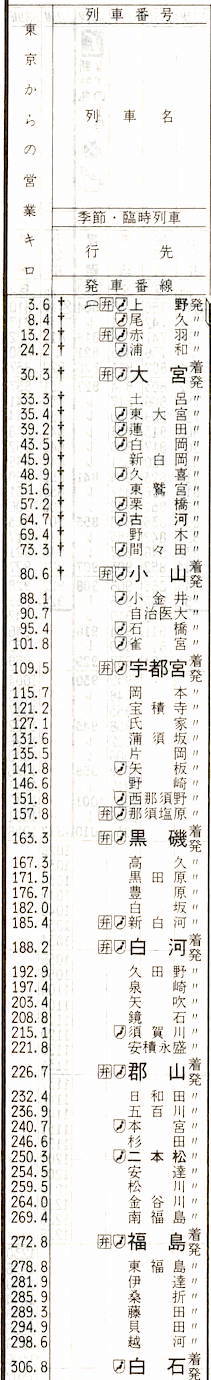 列車番号
東京からの営業キロ
列車名
季節・臨時列車
行先
発車番線
3.6 † 弁 上野発
8.4 † 尾久〃
13.2 † 弁 赤羽〃
24.2 † 浦和〃
30.3 † 弁 大宮着発
33.3 † 土呂〃
35.4 † 東大宮〃
39.2 † 蓮田〃
43.5 † 白岡〃
45.9 † 新白岡〃
48.9 † 久喜〃
51.6 † 東鷲宮〃
57.2 † 栗橋〃
64.7 † 古河〃
69.4 † 野木〃
73.3 † 間々田〃
80.6 † 弁 小山着発
88.1 小金井〃
90.7 自治医大〃
95.4 石橋〃
101.8 雀宮〃
109.5 弁 宇都宮着発
115.7 岡本〃
121.2 宝積寺〃
127.1 氏家〃
131.6 蒲須坂〃
135.5 片岡〃
141.8 矢板〃
146.6 野崎〃
151.8 西那須野〃
157.8 弁 那須塩原〃
163.3 弁 黒磯着発
167.3 高久〃
171.5 黒田原〃
176.7 豊原〃
182.0 白坂〃
185.4 弁 新白河〃
188.2 弁 白河着発
192.9 久田野〃
197.4 泉崎〃
203.4 矢吹〃
208.8 鏡石〃
215.1 須賀川〃
221.8 安積永盛〃
226.7 弁 郡山着発
232.4 日和田〃
236.9 五百川〃
240.7 本宮〃
246.6 杉田〃
250.3 二本松〃
254.5 安達〃
259.5 松川〃
264.0 金谷川〃
269.4 南福島〃
272.8 弁 福島着発
278.8 東福島〃
281.9 伊達〃
285.9 桑折〃
289.3 藤田〃
294.9 貝田〃
298.6 越河〃
306.8 白石着発